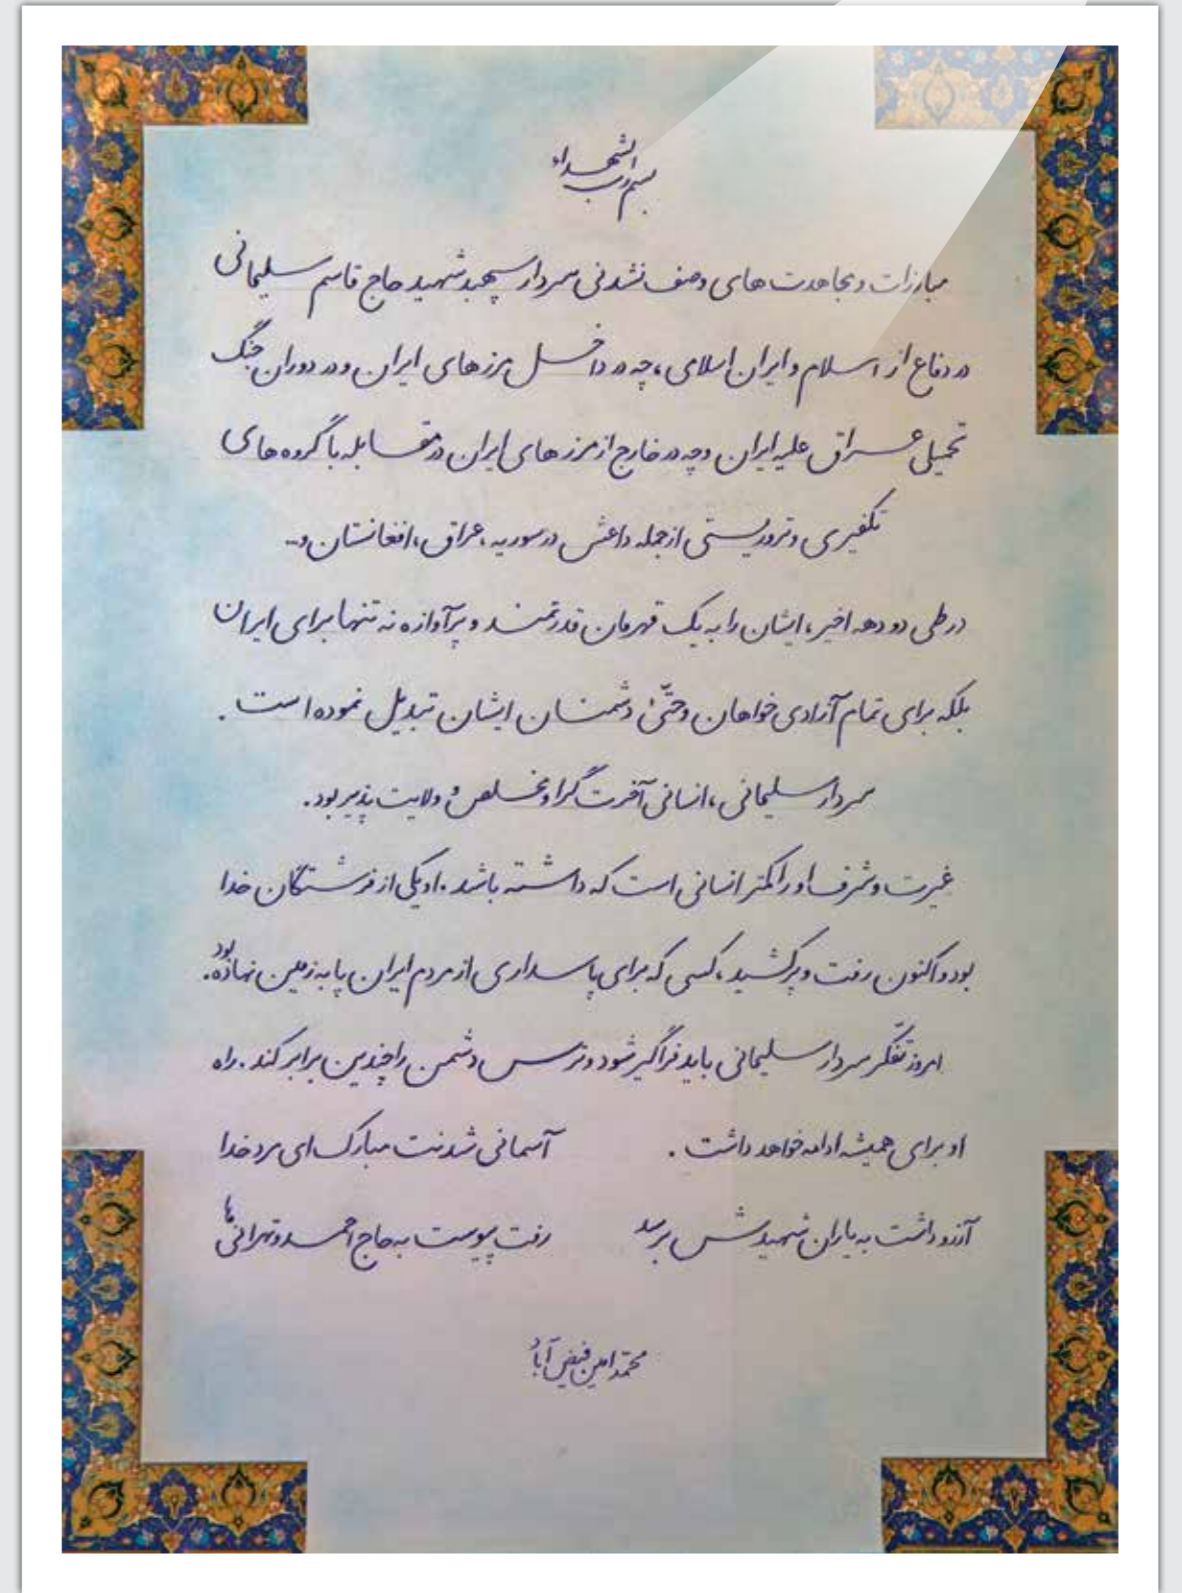 بسم رب الشهداء
مبارزات و مجاهدت های وصف نشدنی سردار سپهبد شهید حاج قاسم سلیمانی
در دفاع از اسلام و ایران اسلامی، چه در داخل مرزهای ایران و در دوران جنگ
تحمیلی عراق علیه ایران و چه در خارج از مرزهای ایران در مقابله با گروه های
تکفیری و تروریستی از جمله داعش در سوریه، عراق، افغانستان و...
در طی دو دهه اخیر، ایشان را به یک قهرمان قدرتمند و پرآوازه نه تنها برای ایران
بلکه برای تمام آزادی خواهان و حتّی دشمنان ایشان تبدیل نموده است.
سردار سلیمانی، انسانی آخرت گرا و مخلص و ولایت پذیر بود.
غیرت و شرف او را کمتر انسانی است که داشته باشد. او یکی از فرشتگان خدا
بود و اکنون رفت و پر کشید، کسی که برای پاسداری از مردم ایران پا به زمین نهاده بود.
امروز تفکّر سردار سلیمانی باید فراگیر شود و ترس دشمن را چندین برابر کند. راه
او برای همیشه ادامه خواهد داشت. آسمانی شدنت مبارک ای مرد خدا
آرزو داشت به یاران شهیدش برسد رفت پیوست به حاج احمد و تهرانی ها
محمّد امین فیض آباد